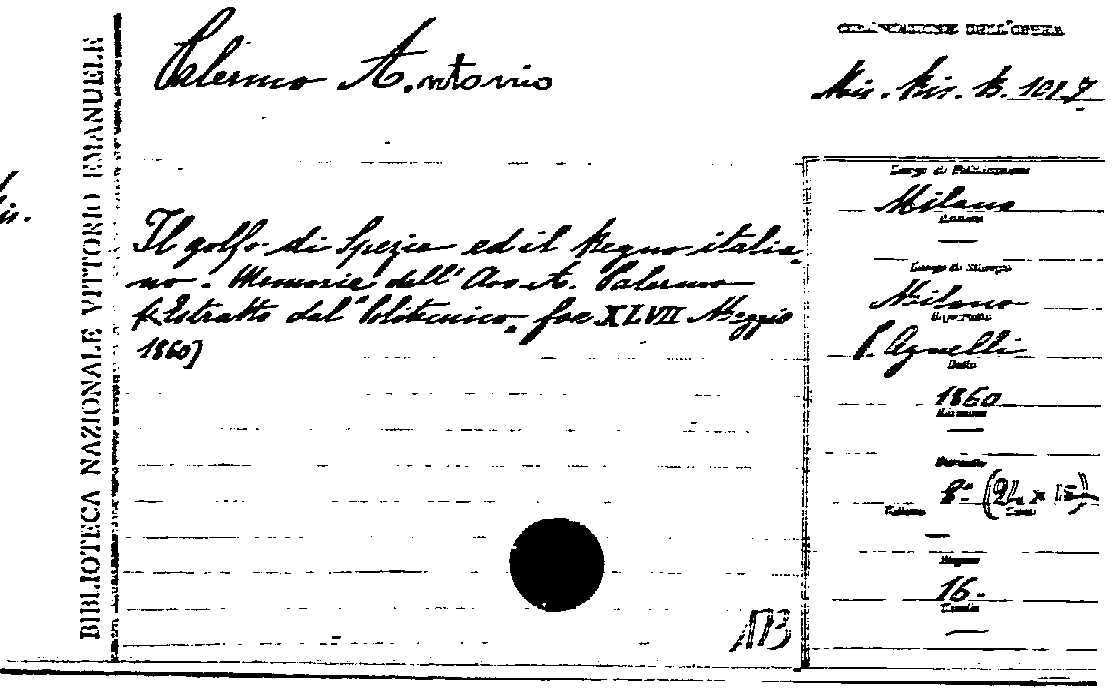 BIBLIOTECA NAZIONALE VITTORIO EMANUELE
Palermo Antonio
COLLOCAZIONE DELL'OPERA
Mis. Ris. B. 101.7
Il golfo di Spezia ed il Regno italia-
no. Memoria dell' Avv. A. Palermo
(Estratto dal "Politecnico" fac XLVII Maggio
1860)
Luogo di Pubblicazione
Milano
Luogo di Stampa
Milano
P. Agnelli
Data
1860
Formato
8°
16.